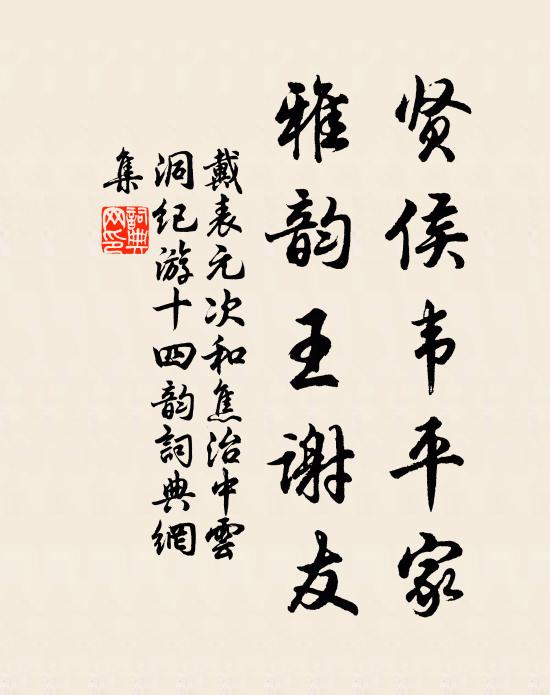 贤侯韦平家
雅韵王谢友
戴表元次和焦治中雲
洞纪游十四韵詞典網
集
詞典网印